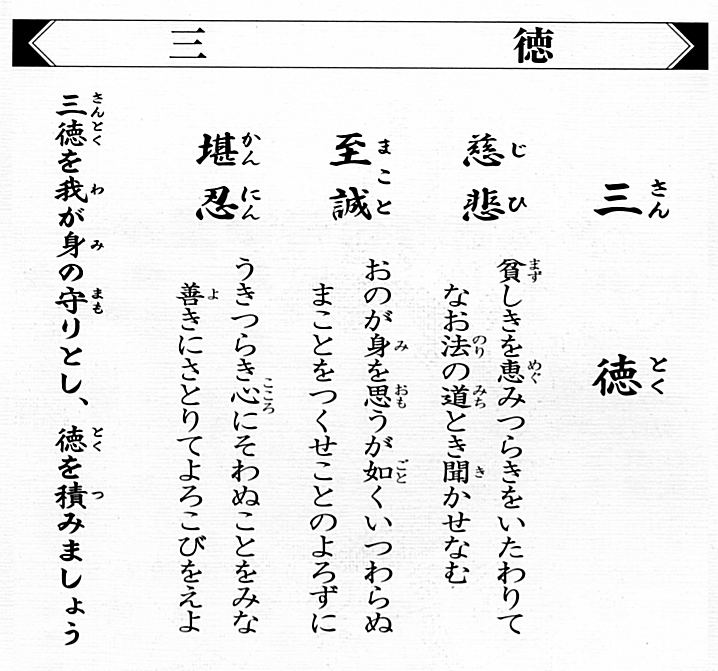 三徳
三徳
慈悲
貧しきを恵みつらきをいたわりて
なお法の道とき聞かせなむ
至誠
おのが身を思うが如くいつわらぬ
まことをつくせことのよろずに
堪忍
うきつらき心にそわぬことをみな
善きにさとりてよろこびをえよ
三徳を我が身の守りとし、徳を積みましょう